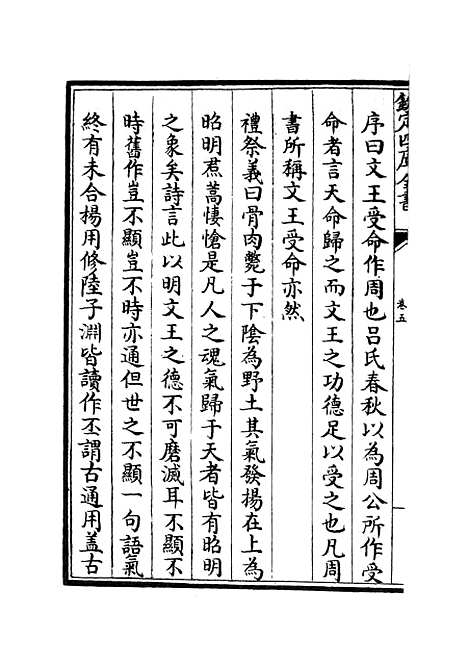 欽定四庫全書
卷五
序曰文王受命作周也吕氏春秋以為周公所作受
命者言天命歸之而文王之功德足以受之也凡周
書所稱文王受命亦然
禮祭義曰骨肉斃于下陰為野土其氣發揚在上為
昭明焄蒿悽愴是凡人之魂氣歸于天者皆有昭明
之象矣詩言此以明文王之德不可磨滅耳不顯不
時舊作豈不顯豈不時亦通但世之不顯一句語氣
終有未合楊用修陸子淵皆讀作丕謂古通用盖古